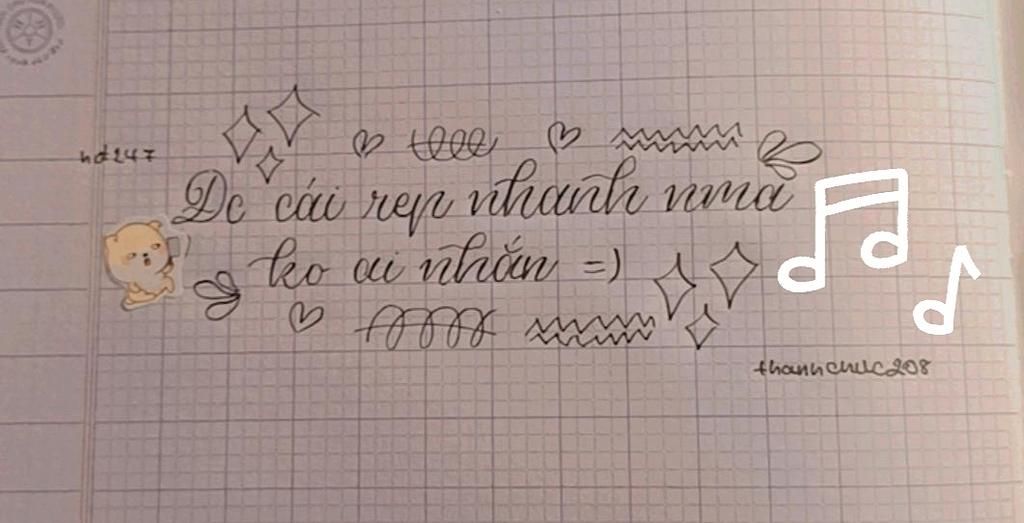 hd247
Dc cái rep nhanh nma
ko ai nhắn =)
thanhchuc208